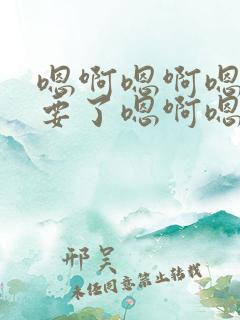 嗯啊嗯啊嗯
要了嗯啊嗯
邢吴
未经同意禁止转载